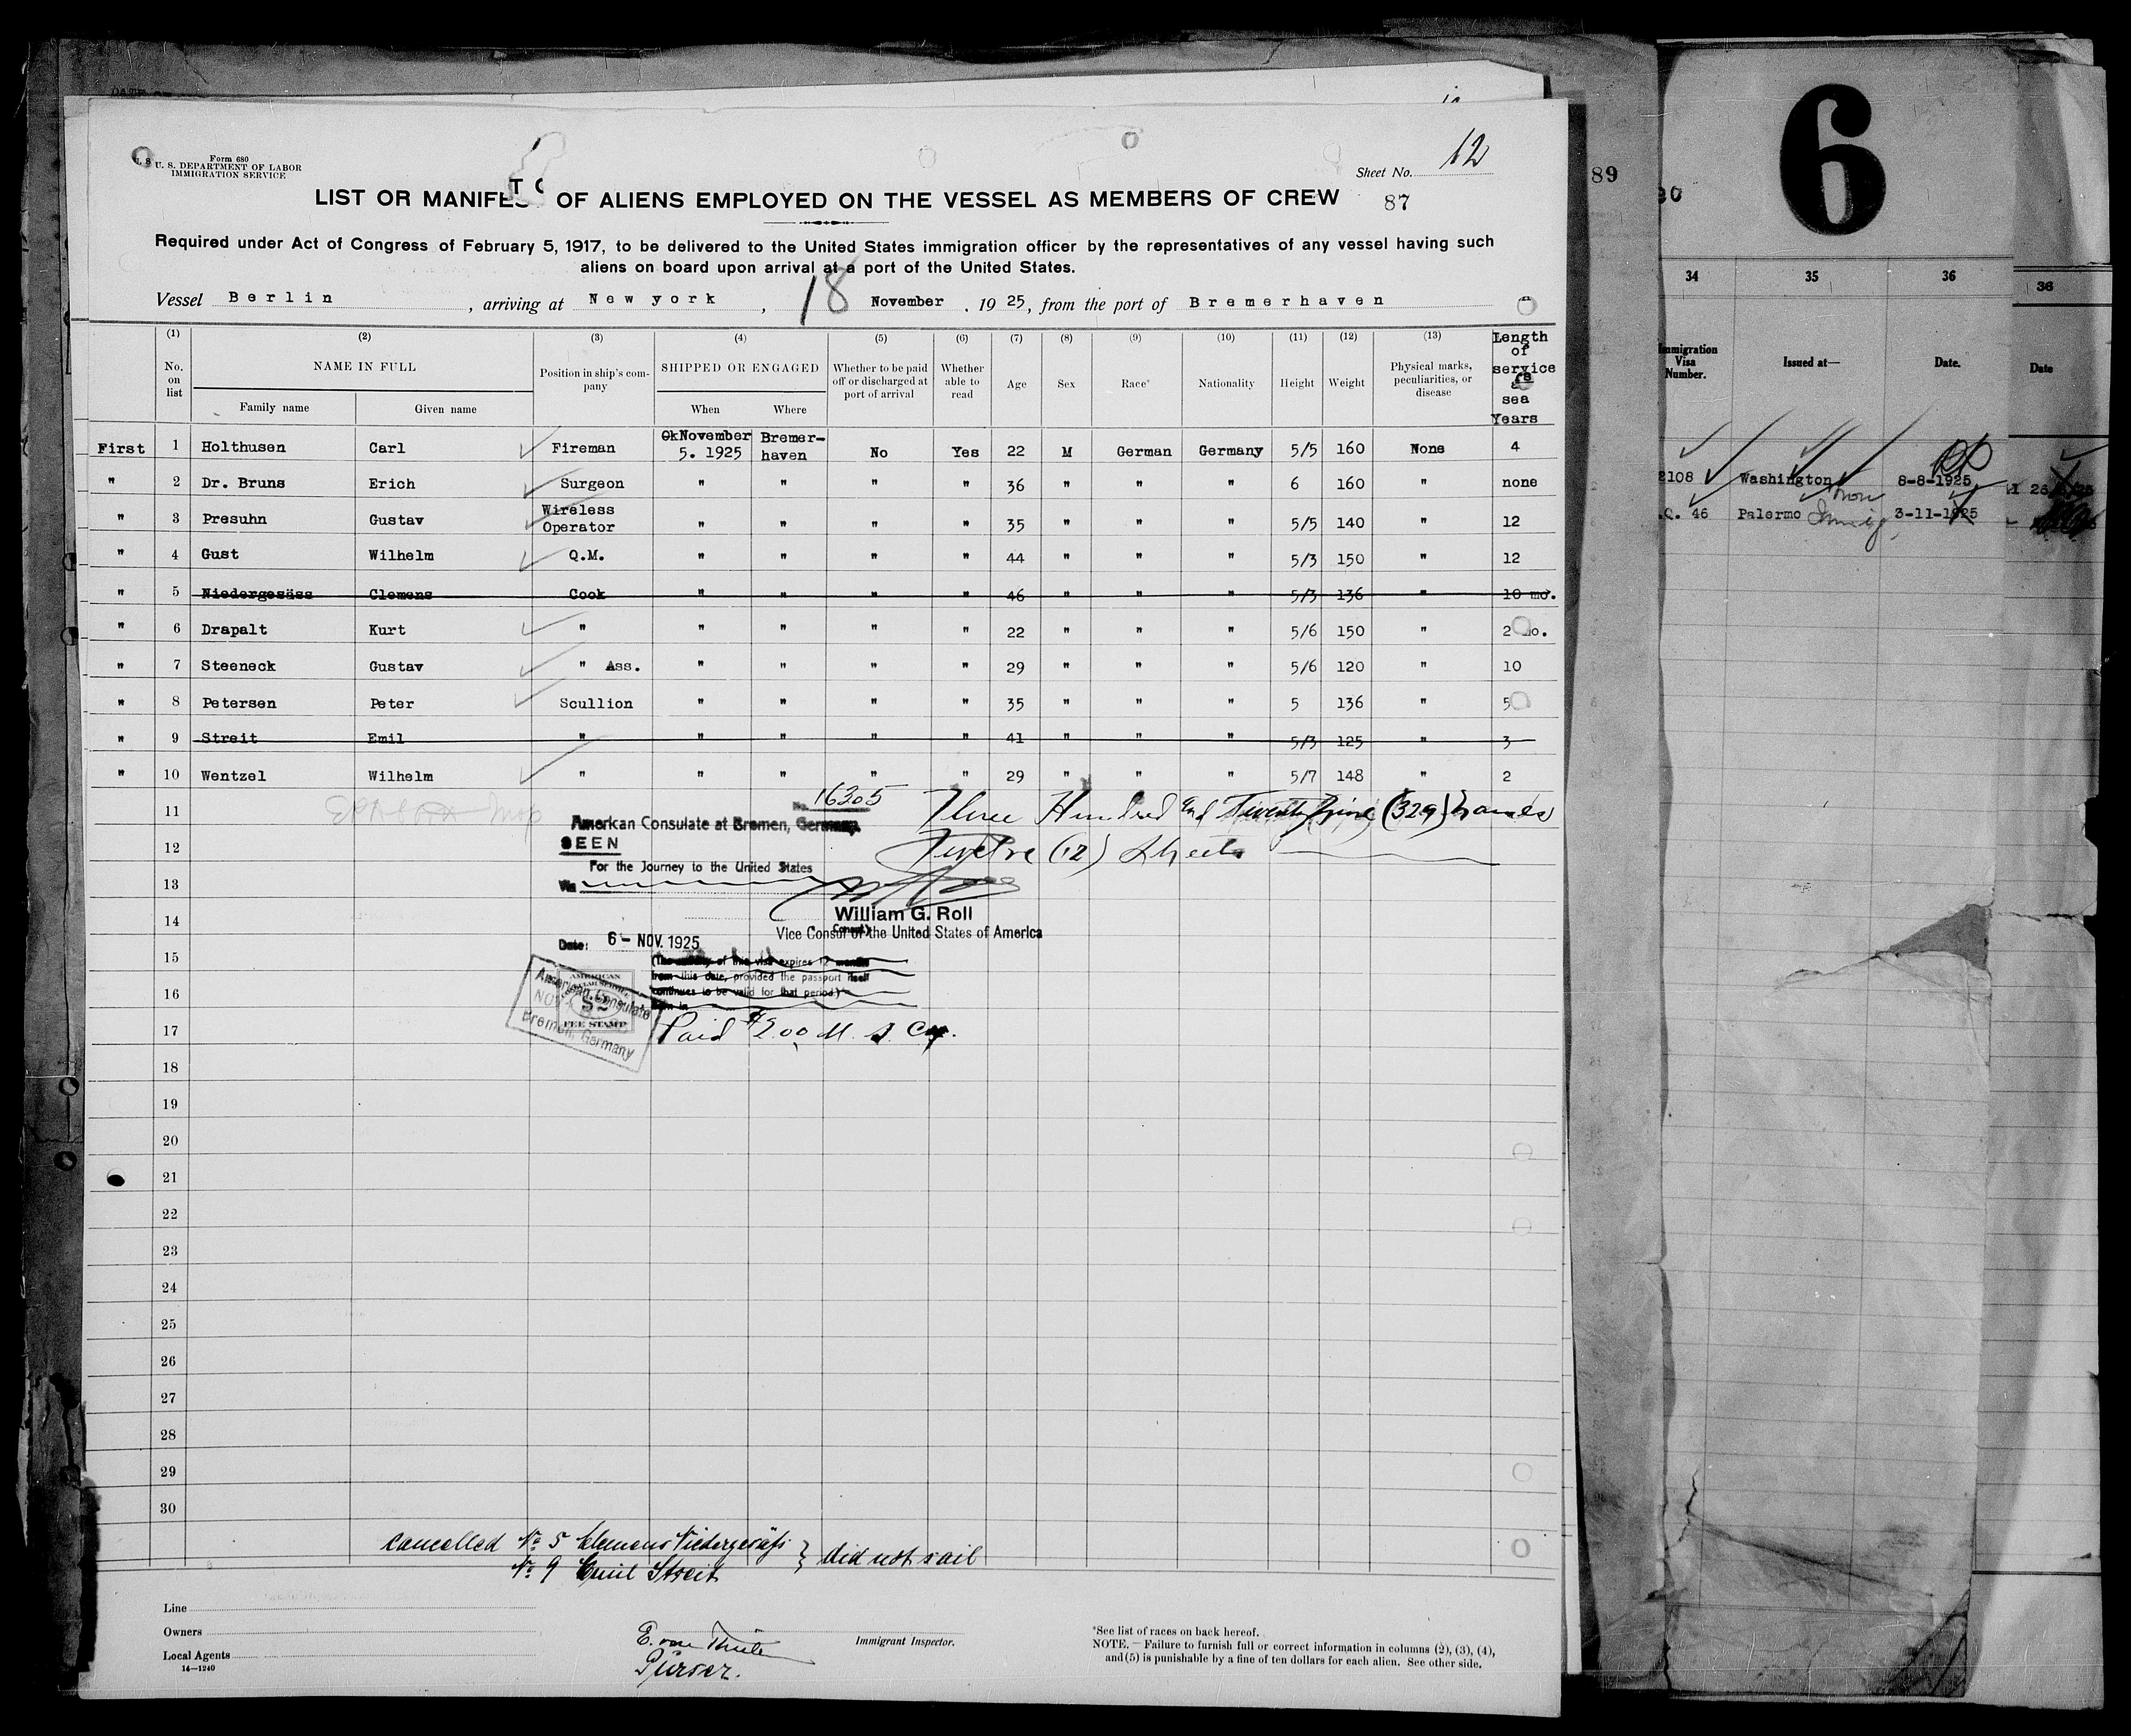 Form 680
U. S. DEPARTMENT OF LABOR
IMMIGRATION SERVICE
Sheet No. 12
LIST OR MANIFEST OF ALIENS EMPLOYED ON THE VESSEL AS MEMBERS OF CREW
87
Required under Act of Congress of February 5, 1917, to be delivered to the United States immigration officer by the representatives of any vessel having such
aliens on board upon arrival at a port of the United States.
Vessel Berlin, arriving at New york, 18 November, 1925, from the port of Bremerhaven
(1) (2) (3) (4) (5) (6) (7) (8) (9) (10) (11) (12) (13)
No. on list NAME IN FULL Family name Given name Position in ship's company SHIPPED OR ENGAGED When Where Whether to be paid off or discharged at port of arrival Whether able to read Age Sex Race* Nationality Height Weight Physical marks, peculiarities, or disease Length of service sea Years
First 1 Holthusen Carl Fireman November 5. 1925 Bremer-haven No Yes 22 M German Germany 5/5 160 None 4
" 2 Dr. Bruns Erich Surgeon " " " " 36 " " " 6 160 " none
" 3 Presuhn Gustav Wireless Operator " " " " 35 " " " 5/5 140 " 12
" 4 Gust Wilhelm Q.M. " " " " 44 " " " 5/3 150 " 12
" 5 Niedergesäss Clemens Cook " " " " 46 " " " 5/3 136 " 10 mo.
" 6 Drapalt Kurt " " " " " 22 " " " 5/6 150 " 2 mo.
" 7 Steeneck Gustav " Ass. " " " " 29 " " " 5/6 120 " 10
" 8 Petersen Peter Scullion " " " " 35 " " " 5 136 " 5
" 9 Streit Emil " " " " " 41 " " " 5/3 125 " 3
" 10 Wentzel Wilhelm " " " " " 29 " " " 5/7 148 " 2
11
No. 16305
Three Hundred and Twenty Nine (329) names
American Consulate at Bremen, Germany.
12
SEEN
Twelve (12) Sheets
For the Journey to the United States
13
Via
14
William G. Roll
Vice Consul of the United States of America
Date: 6 - NOV. 1925
15
(The validity of this visa expires 12 months
from this date, provided the passport itself
continues to be valid for that period.)
16
American Consulate
AMERICAN
FEE STAMP
Bremen, Germany
17
Paid $2.00
18
19
20
21
22
23
24
25
26
27
28
29
30
cancelled No 5 Clemens Niedergesäss
No 9 Emil Streit
} did not sail
Line
Owners
Local Agents
16—1240
E. von
Purser.
Immigrant Inspector.
*See list of races on back hereof.
NOTE.—Failure to furnish full or correct information in columns (2), (3), (4),
and (5) is punishable by a fine of ten dollars for each alien. See other side.
89
6
34 35 36
36
Immigration Visa Number. Issued at— Date.
Date
2108 Washington 8-8-1925
46 Palermo 3-11-1925